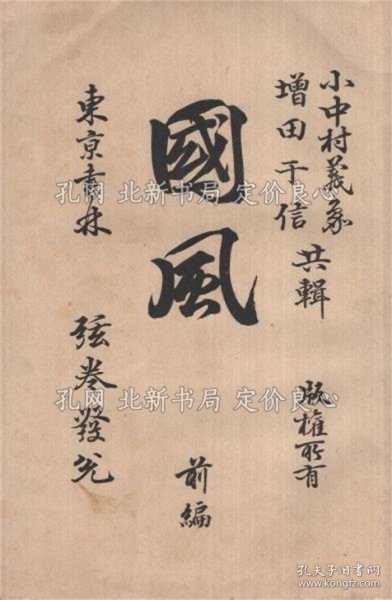 小中村義象
增田于信
共輯
版權所有
國風
前編
東京書林
弦卷發兌
孔网 北新书局 定价良心
孔网 北新书局 定价良心
孔夫子旧书网